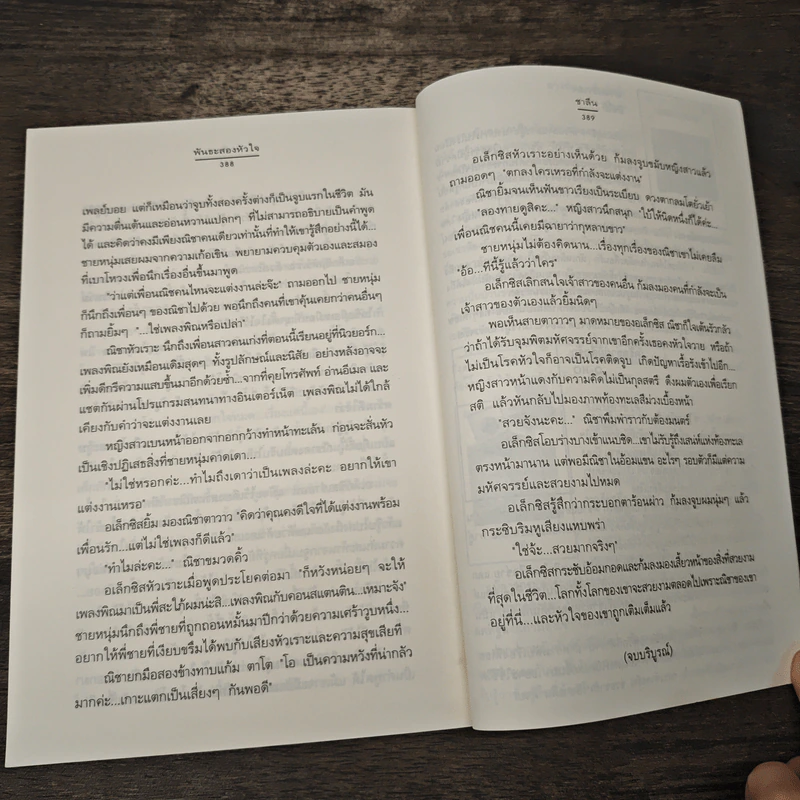 พันธะสองหัวใจ
388
เพลย์บอย แต่ก็เหมือนว่าจูบทั้งสองครั้งต่างก็เป็นจูบแรกในชีวิต มัน
มีความตื่นเต้นและอ่อนหวานแปลกๆ ที่ไม่สามารถอธิบายเป็นคำพูด
ได้ และคิดว่าคงมีเพียงณิชาคนเดียวเท่านั้นที่ทำให้เขารู้สึกอย่างนี้ได้...
ชายหนุ่มเสยผมจากความเก้อเขิน พยายามควบคุมตัวเองและสมอง
ที่เบาโหวงเพื่อนึกเรื่องอื่นขึ้นมาพูด
"ว่าแต่เพื่อนณิชคนไหนจะแต่งงานล่ะจ๊ะ" ถามออกไป ชายหนุ่ม
ก็นึกถึงเพื่อนๆ ของณิชาไปด้วย พอนึกถึงคนที่เขาคุ้นเคยกว่าคนอื่นๆ
ก็ถามยิ้มๆ "...ใช่เพลงพิณหรือเปล่า"
ณิชาหัวเราะ นึกถึงเพื่อนสาวคนเก่งที่ตอนนี้เรียนอยู่ที่นิวยอร์ก...
เพลงพิณยังเหมือนเดิมสุดๆ ทั้งรูปลักษณ์และนิสัย อย่างหลังอาจจะ
เพิ่มดีกรีความแสบขึ้นมาอีกด้วยซ้ำ...จากที่คุยโทรศัพท์ อ่านอีเมล และ
แชตกันผ่านโปรแกรมสนทนาทางอินเตอร์เน็ต เพลงพิณไม่ได้ใกล้
เคียงกับคำว่าจะแต่งงานเลย
หญิงสาวเบนหน้าออกจากอกกว้างทำหน้าทะเล้น ก่อนจะสั่นหัว
เป็นเชิงปฏิเสธสิ่งที่ชายหนุ่มคาดเดา...
"ไม่ใช่หรอกค่ะ...ทำไมถึงเดาว่าเป็นเพลงล่ะคะ อยากให้เขา
แต่งงานเหรอ"
อเล็กซิสยิ้ม มองณิชาตาวาว "คิดว่าคุณคงดีใจที่ได้แต่งงานพร้อม
เพื่อนรัก...แต่ไม่ใช่เพลงก็ดีแล้ว"
"ทำไมล่ะคะ..." ณิชาขมวดคิ้ว
อเล็กซิสหัวเราะเมื่อพูดประโยคต่อมา "ก็หวังหน่อยๆ จะให้
เพลงพิณมาเป็นพี่สะใภ้ผมน่ะสิ...เพลงพิณกับคอนสแตนติน...เหมาะจัง"
ชายหนุ่มนึกถึงพี่ชายที่ถูกถอนหมั้นมาปีกว่าด้วยความเศร้าวูบหนึ่ง...
อยากให้พี่ชายที่เงียบขรึมได้พบกับเสียงหัวเราะและความสุขเสียที
ณิชายกมือสองข้างทาบแก้ม ตาโต "โอ เป็นความหวังที่น่ากลัว
มากค่ะ...เกาะแตกเป็นเสี่ยงๆ กันพอดี"
ชาลีน
389
อเล็กซิสหัวเราะอย่างเห็นด้วย ก้มลงจูบขมับหญิงสาวแล้ว
ถามออดๆ "ตกลงใครเหรอที่กำลังจะแต่งงาน"
ณิชายิ้มจนเห็นฟันขาวเรียงเป็นระเบียบ ดวงตากลมโตยั่วเย้า
"ลองทายดูสิคะ..." หญิงสาวนึกสนุก "ใบ้ให้นิดหนึ่งก็ได้ค่ะ...
เพื่อนณิชคนนี้เคยมีฉายาว่ากุหลาบขาว"
ชายหนุ่มไม่ต้องคิดนาน...เรื่องทุกเรื่องของณิชาเขาไม่เคยลืม
"อ้อ...ทีนี้รู้แล้วว่าใคร"
อเล็กซิสเลิกสนใจเจ้าสาวของคนอื่น ก้มลงมองคนที่กำลังจะเป็น
เจ้าสาวของตัวเองแล้วยิ้มนิดๆ
พอเห็นสายตาวาวๆ มาดหมายของอเล็กซิส ณิชาก็ใจเต้นรัวกลัว
ว่าถ้าได้รับจุมพิตมหัศจรรย์จากเขาอีกครั้งเธอคงหัวใจวาย หรือถ้า
ไม่เป็นโรคหัวใจก็อาจเป็นโรคติดจูบ เกิดปัญหาเรื้อรังเข้าไปอีก...
หญิงสาวหน้าแดงกับความคิดไม่เป็นกุลสตรี ดึงผมตัวเองเพื่อเรียก
สติ แล้วหันกลับไปมองภาพท้องทะเลสีม่วงเบื้องหน้า
"สวยจังนะคะ..." ณิชาพึมพำราวกับต้องมนตร์
อเล็กซิสโอบร่างบางเข้าแนบชิด...เขาไม่รับรู้ถึงเสน่ห์แห่งท้องทะเล
ตรงหน้ามานาน แต่พอมีณิชาในอ้อมแขน อะไรๆ รอบตัวก็มีแต่ความ
มหัศจรรย์และสวยงามไปหมด
อเล็กซิสรู้สึกว่ากระบอกตาร้อนผ่าว ก้มลงจูบผมนุ่มๆ แล้ว
กระซิบริมหูเสียงแหบพร่า
"ใช่จ้ะ...สวยมากจริงๆ"
อเล็กซิสกระชับอ้อมกอดและก้มลงมองเสี้ยวหน้าของสิ่งที่สวยงาม
ที่สุดในชีวิต...โลกทั้งโลกของเขาจะสวยงามตลอดไปเพราะณิชาของเขา
อยู่ที่นี่...และหัวใจของเขาถูกเติมเต็มแล้ว
(จบบริบูรณ์)